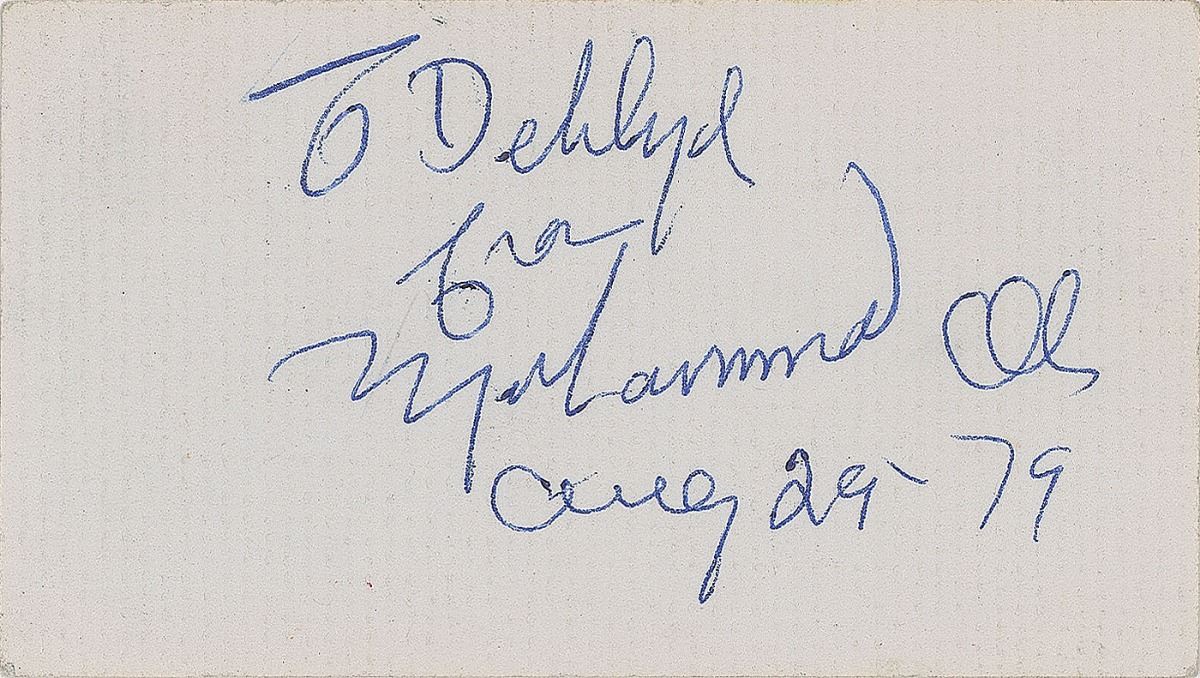 To
from
Muhammad Ali
Aug 29 - 79